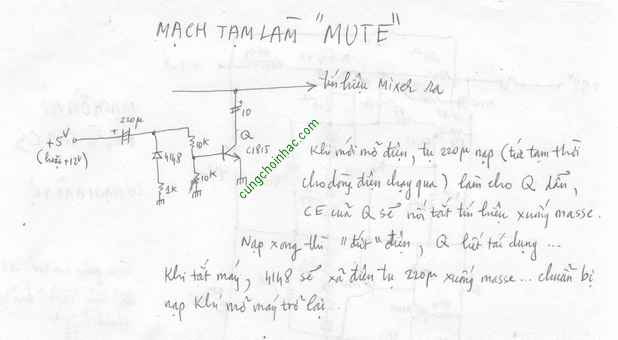 MẠCH TẠM LÀM "MUTE"
tín hiệu Mixer ra
220µ
+5V
(hoặc +12V)
10
Q
C1815
10K
4148
1K
10K
cungchoinhac.com
Khi mới mở điện, tụ 220µ nạp (tức tạm thời
cho dòng điện chạy qua) làm cho Q dẫn,
CE của Q sẽ nối tắt tín hiệu xuống masse.
Nạp xong thì "đứt" điện, Q hết tác dụng ...
Khi tắt máy, 4148 sẽ xả điện tụ 220µ xuống masse... chuẩn bị
nạp khi mở máy trở lại.